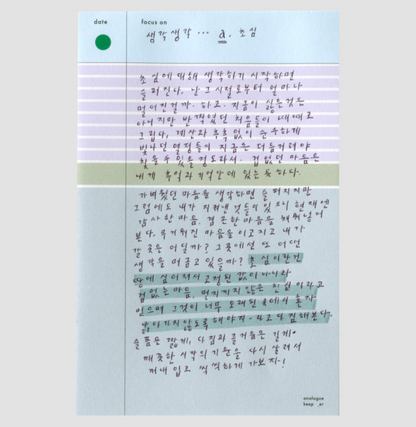 date
focus on
생각생각 ... a. 초심
초심에 대해 생각하기 시작하면
슬퍼진다. 난 그 시절으로부터 얼마나
멀어진걸까. 하고. 지금이 싫은것은
아니지만 반짝였던 처음들이 때때로
그립다. 계산과 부추 없이 순수하게
빛나던 열정들이 지금은 더듬거려야
찾을 수 있을 정도라서. 겁없던 마음은
내게 추억과 기억 안에 있는 듯 하다.
가벼웠던 마음을 생각하면 슬퍼지지만
그럼에도 내가 지켜낸 것들이 있으니 현재엔
감사한 마음. 겸손한 마음을 채워넣어
본다. 무거워진 마음을 이고지고 내가
갈 곳은 어딜까? 그곳에선 또 어떤
생각을 머금고 있을까? 초심이란건
땅에 심어져서 고정된 값이 아니라
겁없는 마음, 변치 않은 진심 이라고
믿으며 그것이 너무 오래된 곳에서 혼자
남아가지 않도록 해야지- 라고 다짐해본다.
슬픔은 짧게, 다짐과 즐거움은 길게.
깨끗한 시작의 기분을 다시 살려서
저내 입고 씩씩하게 가보자-!
analogue
keep